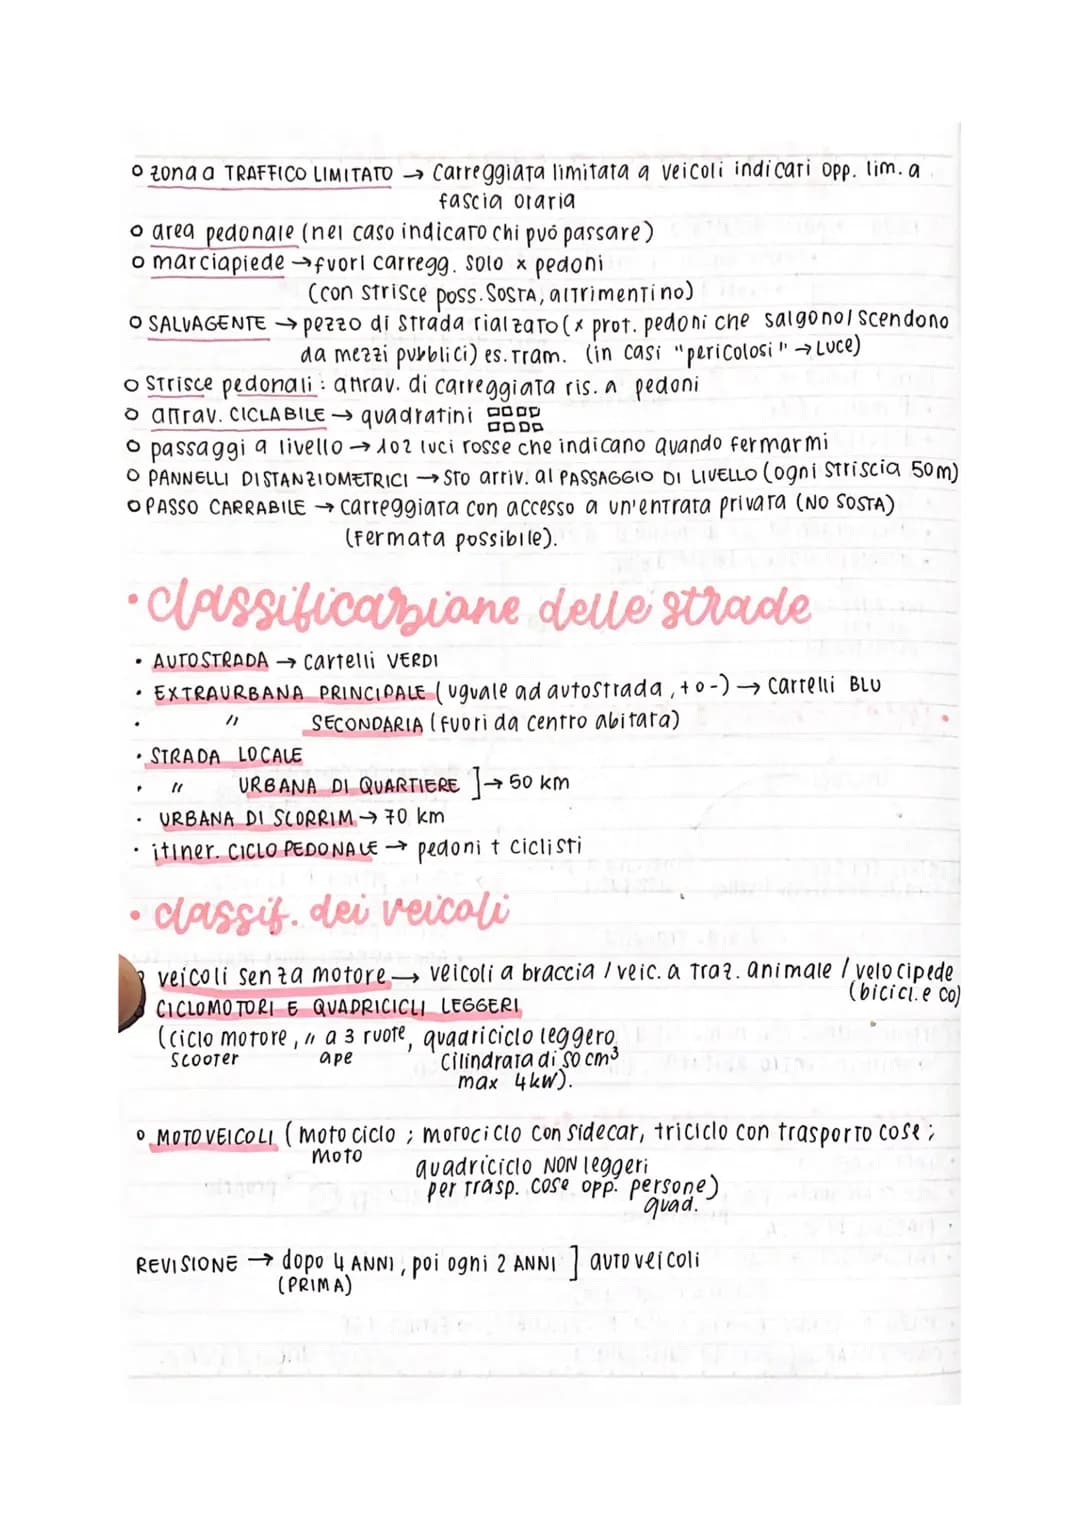 ○ zona a TRAFFICO LIMITATO → carreggiata limitata a veicoli indicati opp. lim. a
fascia oraria
○ area pedonale (nel caso indicato chi può passare)
○ marciapiede → fuori carregg. solo x pedoni
(con strisce poss. SOSTA, altrimenti no)
○ SALVAGENTE → pezzo di strada rialzato (x prot. pedoni che salgono/scendono
da mezzi pubblici) es. tram. (in casi "pericolosi" → luce)
○ strisce pedonali : attrav. di carreggiata ris. a pedoni
○ attrav. CICLABILE → quadratini
○ passaggi a livello → 1 o 2 luci rosse che indicano quando fermarmi
○ PANNELLI DISTANZIOMETRICI → sto arriv. al PASSAGGIO DI LIVELLO (ogni striscia 50m)
○ PASSO CARRABILE → carreggiata con accesso a un'entrata privata (NO SOSTA)
(fermata possibile).
• classificazione delle strade
• AUTOSTRADA → cartelli VERDI
• EXTRAURBANA PRINCIPALE (uguale ad autostrada, + o -) → cartelli BLU
• " SECONDARIA (fuori da centro abitata)
• STRADA LOCALE
• " URBANA DI QUARTIERE ] → 50 km
• URBANA DI SCORRIM. → 70 km
• itiner. CICLO PEDONALE → pedoni + ciclisti
• classif. dei veicoli
veicoli senza motore → veicoli a braccia / veic. a traz. animale / velocipede
(bicicl. e co)
CICLOMOTORI E QUADRICICLI LEGGERI
(ciclo motore, " a 3 ruote, quadriciclo leggero
scooter ape cilindrata di 50 cm³
max 4kW).
○ MOTOVEICOLI (motociclo ; motociclo con sidecar, triciclo con trasporto cose ;
moto quadriciclo NON leggeri
per trasp. cose opp. persone)
quad.
REVISIONE → dopo 4 ANNI, poi ogni 2 ANNI ] autoveicoli
(PRIMA)